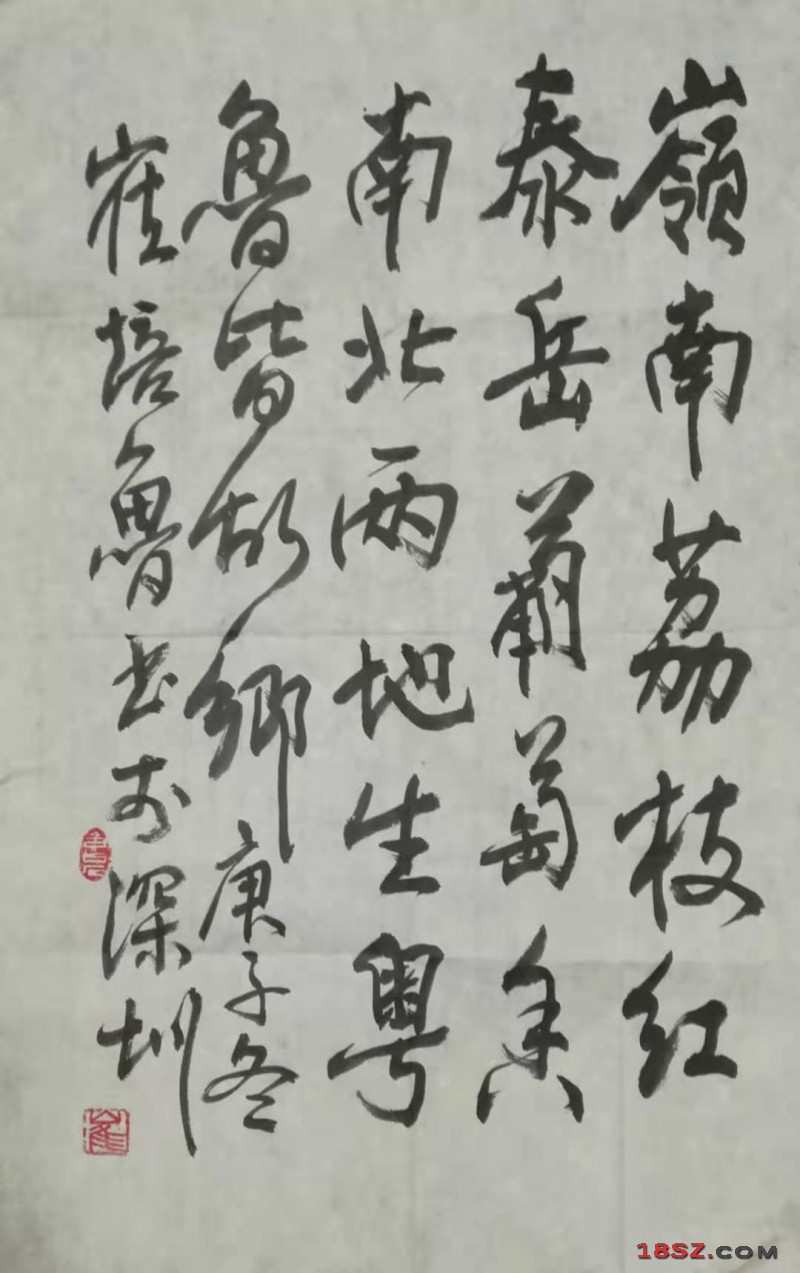 嶺南荔枝红
泰岳葡萄香
南北两地生粤
魯皆故鄉 庚子冬
崔培魯书於深圳
18SZ.COM